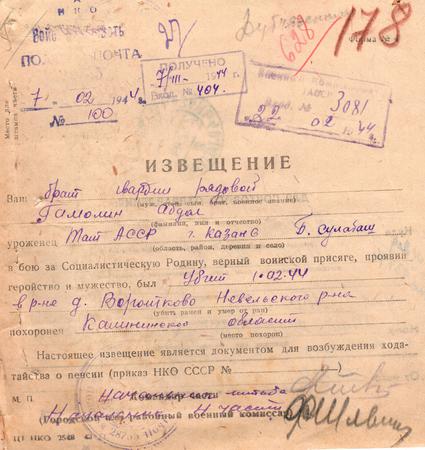 НКО
27/
Дубликат
628
178
ПОЛЕВАЯ ПОЧТА
Форма № 4
ПОЛУЧЕНО
7/III- 1944
Вход. № 404.
7 02 1944 г.
№ 100
Военный комиссариат
ТАССР
3081
22 02 44
Место для
штампа части
ИЗВЕЩЕНИЕ
Ваш брат гвардии рядовой
(муж, сын, брат, военное звание)
Гамолин Абдул
(фамилия, имя и отчество)
уроженец Тат АССР г. Казань Б. Сулабаш
(область, район, деревня и село)
в бою за Социалистическую Родину, верный воинской присяге, проявив
геройство и мужество, был убит 1.02.44
в р-не д. Воротково Невельского р-на
(убит, ранен и умер от ран)
похоронен Калининской области
(место похорон)
Настоящее извещение является документом для возбуждения хода-
тайства о пенсии (приказ НКО СССР №
М. П. Начальник штаба
(Городской районный военный комиссар)
Ц НКО 2548